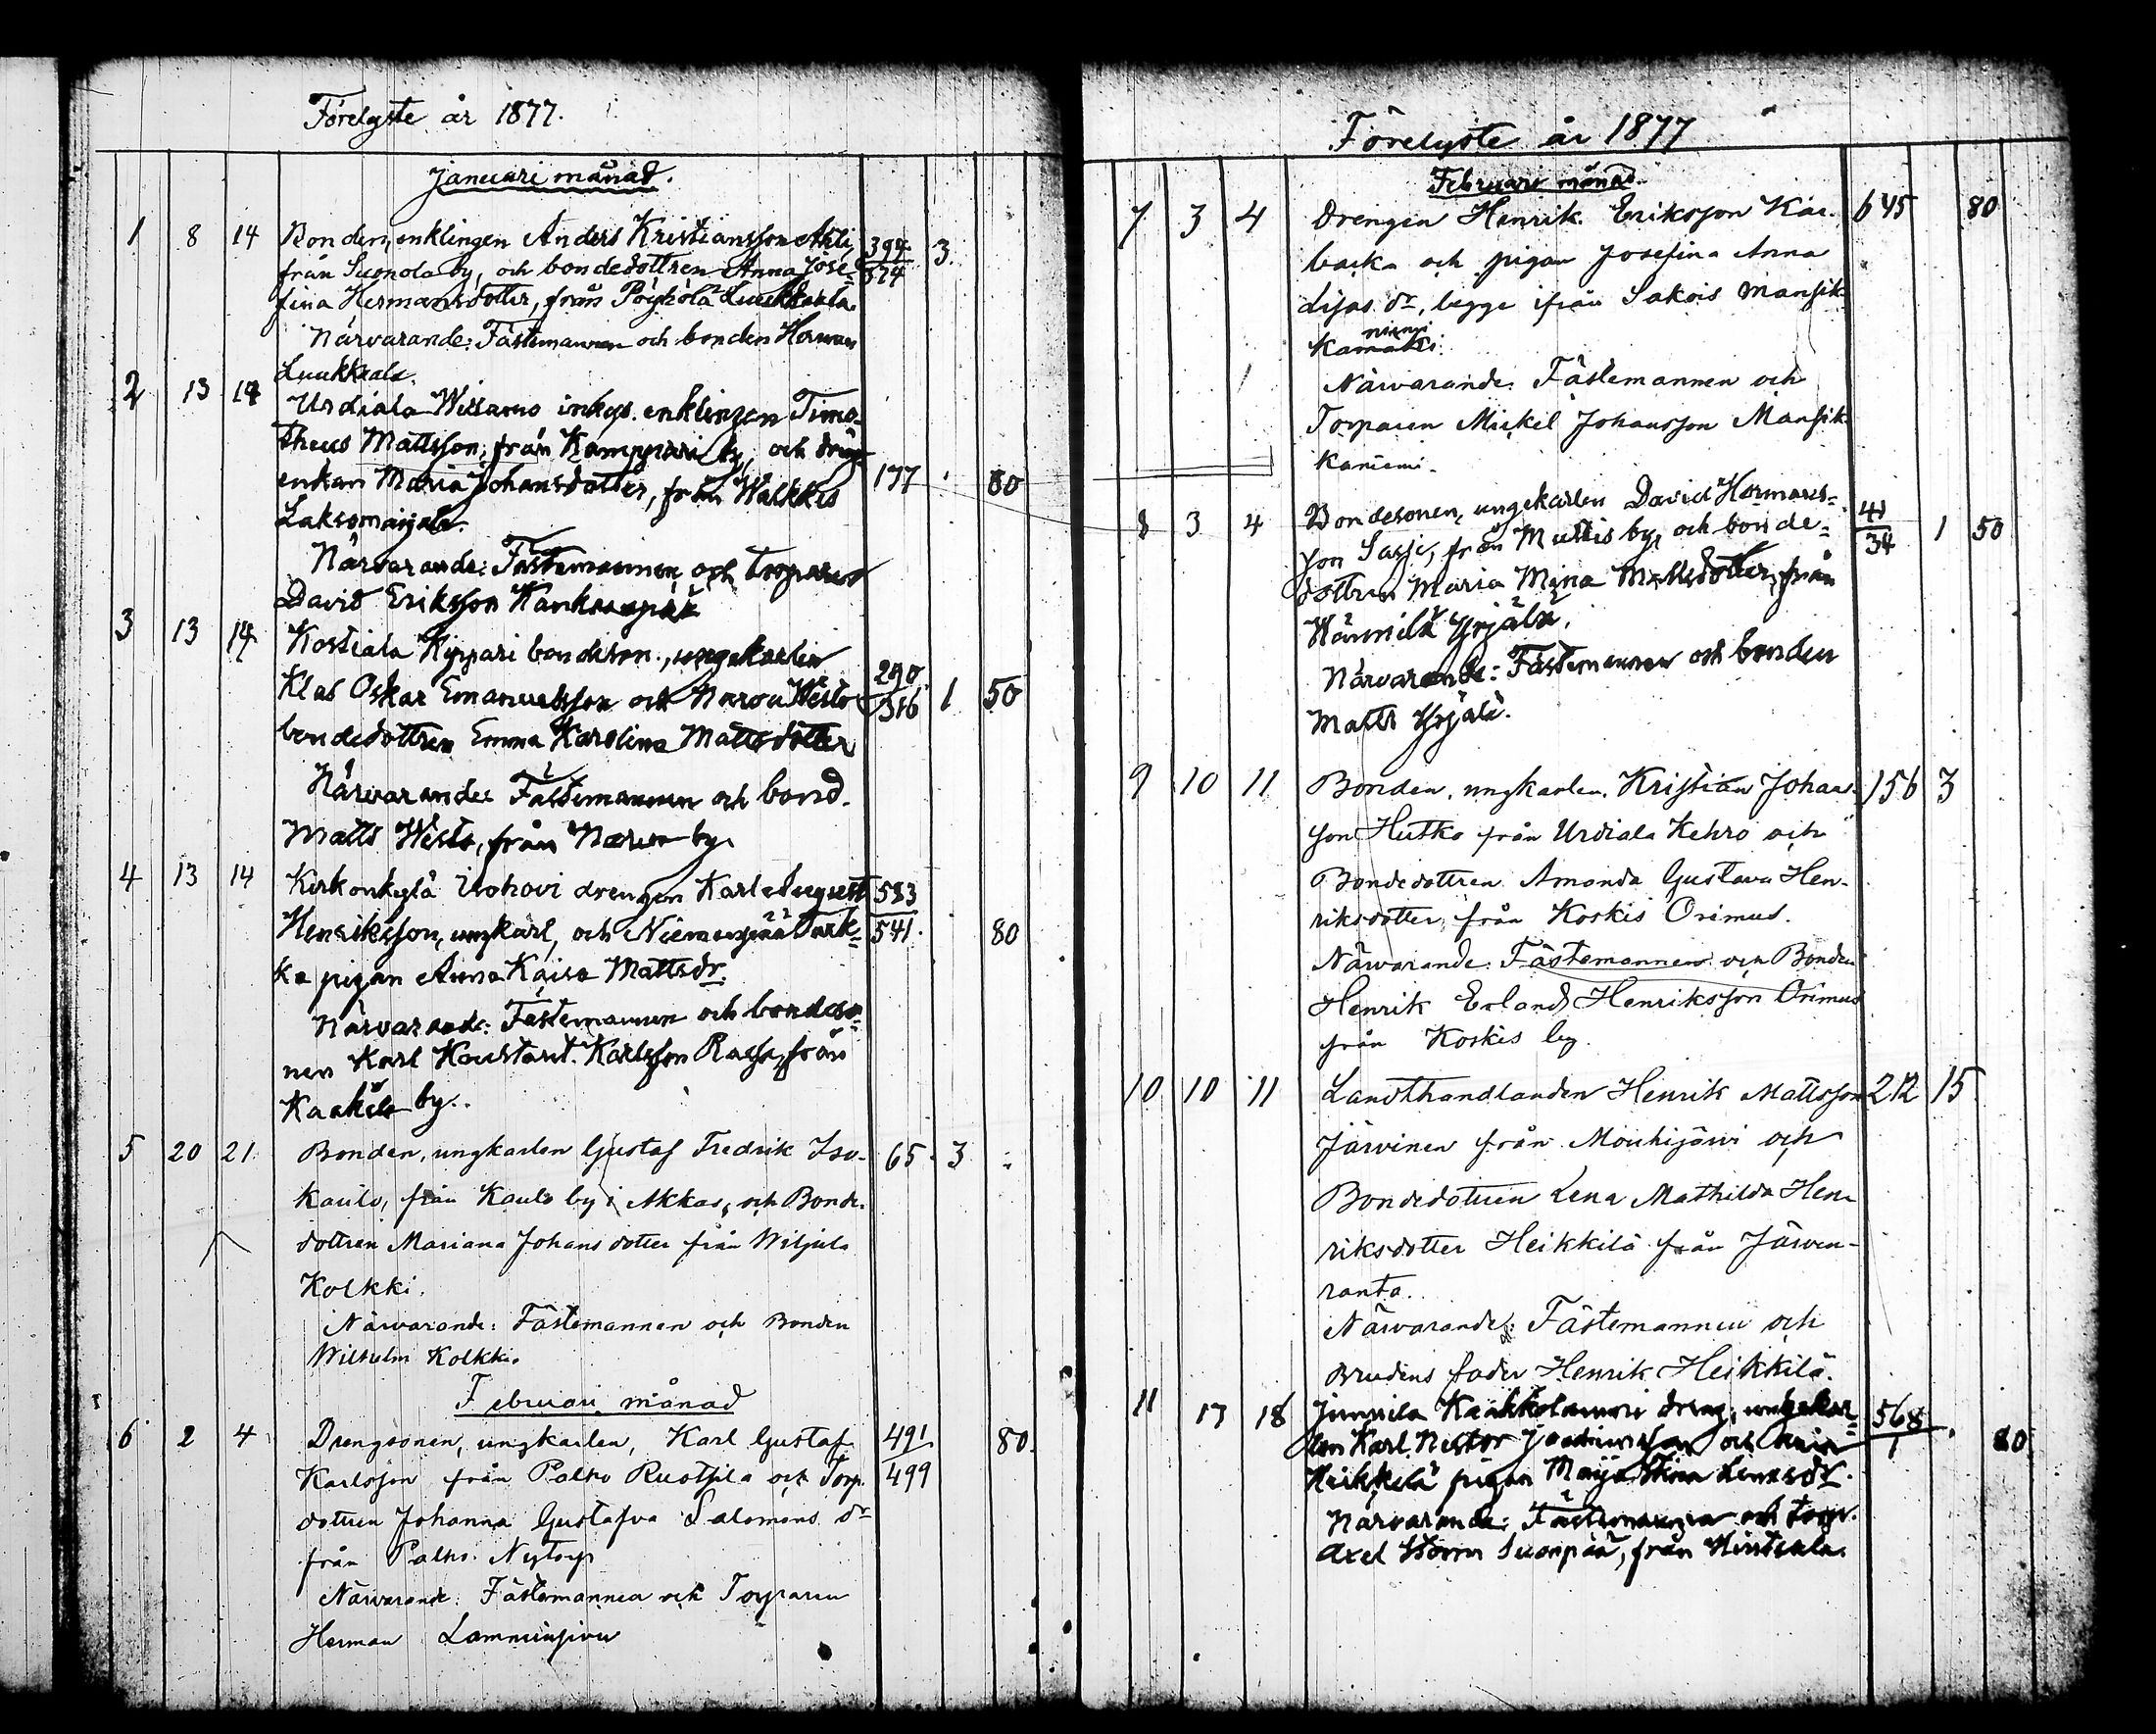 Förelyste år 1877.
Januari månad.
1 8 14 Bonden, enklingen Anders Kristiansson Ahti, 394 3
från Suonola by, och bondedottren Anna Jose- 574
fina Hermansdotter, från Pöyhölä Luukkaala.
Närvarande: Fästemannen och bonden Herman
Luukkaala.
2 13 14 Urdiala inhys. enklingen Timo-
theus Mattsson, från Kamppari by, och dräng-
enkan Maria Johansdotter, från Walkkis 177 80
Laksomarjala.
Närvarande: Fästemannen och torparen
David Eriksson
3 13 14 Kostiala Kyppari bondeson, ungekarlen
Klas Oskar Emanuelsson och Narva Westo 290 316 1 50
bondedottren Emma Karolina Mattsdotter
Närvarande: Fästemannen och bond.
Matts Westo, från Narva by.
4 13 14 Kirkonkylä Isohovi drengen Karl August 583
Henriksson, ungkarl, och Niemenpää Tark- 541 80
ka pigan Anna Kaisa Mattsdr.
Närvarande: Fästemannen och bondeso-
nen Karl Konstant. Karlsson Rassa, från
Kaakila by.
5 20 21 Bonden, ungkarlen Gustaf Fredrik Iso- 65 3
kaulo, från Kaulo by i Akkas, och Bonde-
dottren Mariana Johansdotter från Wiljula
Kolkki.
Närvarande: Fästemannen och Bonden
Wilhelm Kolkki.
Februari månad
6 2 4 Drengsonen, ungkarlen, Karl Gustaf 491 80
Karlsson från Palho Ruotsila och Torp. 499
dottren Johanna Gustafva Salomons dr
från Palho Nytorp
Närvarande: Fästemannen och Torparen
Herman
Förelyste år 1877
Februari månad.
7 3 4 Drengen Henrik Eriksson Kar- 645 80
backa och pigan Josefina Anna
Lisas dr, begge ifrån Sakois Mansik-
niemi
kamäki.
Närvarande: Fästemannen och
Torparen Mickel Johansson Mansik-
kaniemi.
8 3 4 Bondesonen, ungekarlen David Hermans- 41 1 50
son Sassi, från Mullis by, och bonde- 34
dottren Maria Mina Mattsdotter, från
Wännilä Yrjälä.
Närvarande: Fästemannen och bonden
Matts Yrjälä.
9 10 11 Bonden, ungkarlen, Kristian Johans- 156 3
son Hutko från Urdiala Kehro och
Bondedottren Amanda Gustava Hen-
riksdotter, från Koskis Orimus.
Närvarande: Fästemannen och Bonden
Henrik Erland Henriksson Orimus
från Koskis by.
10 10 11 Landthandlanden Henrik Mattsson 212 15
Järvinen från Mouhijärvi och
Bondedottren Lena Mathilda Hen-
riksdotter Heikkilä från Järven-
ranta.
Närvarande: Fästemannen och
Brudens fader Henrik Heikkilä.
11 17 18 Junnila dreng, ungekar- 568
len Karl Nestor och 1 80
Heikkilä pigan Maija Stina
Närvarande: Fästemannen och torp.
Axel Suonpää, från Hintsala.